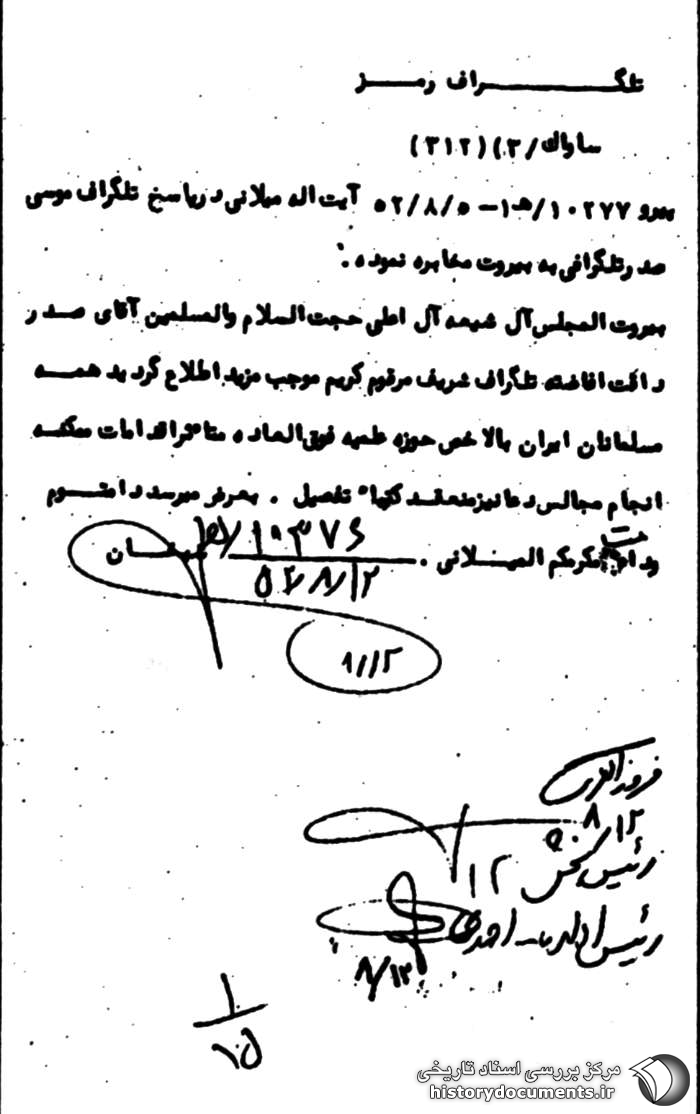 تلگراف رمز
ساواك/۳) (۳۱۲)
پیرو ۱۰۲۷۷/ﻫ۱- ۵۲/۸/۵ آیت اله میلانی در پاسخ تلگراف موسی
صدر تلگرافی به بیروت مخابره نموده .
بیروت المجلس آل شیعه آل اعلی حجت السلام والمسلمین آقای صدر
دامت افاضته تلگراف شریف مرقوم کریم موجب مزید اطلاع گردید همه
مسلمانان ایران بالاخص حوزه علمیه فوق العاده متاثر اقدامات ممکنه
انجام مجالس دعا نیز منعقد کتبا" تفصیل . بعرض میرسد دامتوم
مکرمکم المیلانی .
۱۰۳۷۶
۵۲/۸/۱۲
۸/۱۲
۸/۱۲
رئیس بخش ۳۱۲
رئیس اداره
۸/۱۲
مرکز بررسی اسناد تاریخی
historydocuments.ir